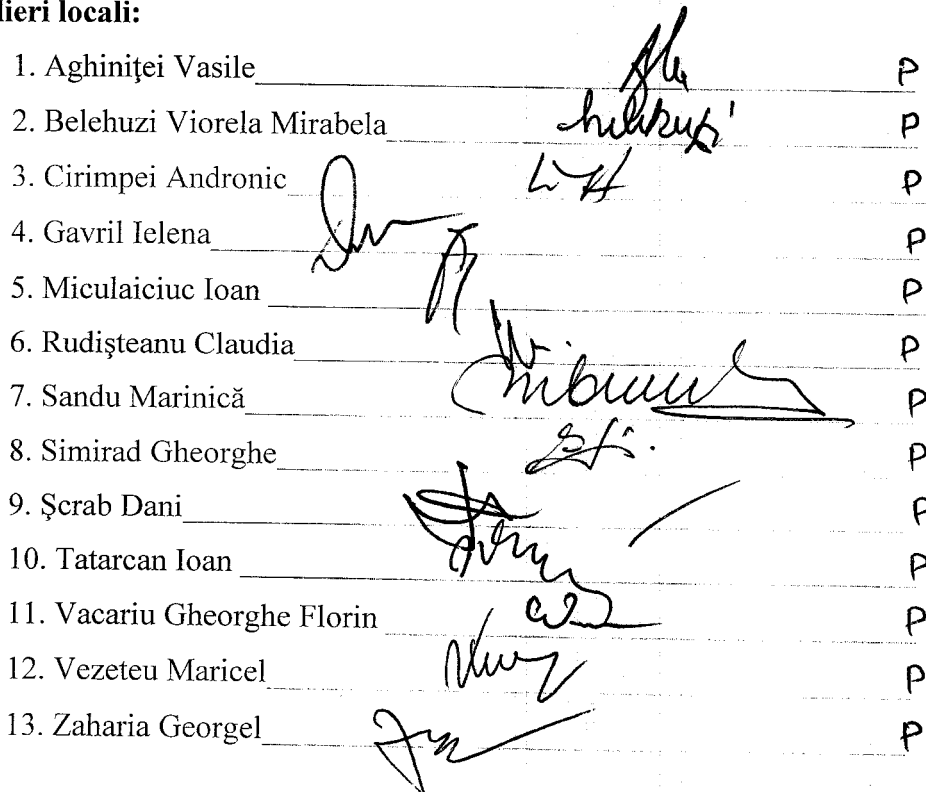 lieri locali:
1. Aghiniţei Vasile P
2. Belehuzi Viorela Mirabela P
3. Cirimpei Andronic P
4. Gavril Ielena P
5. Miculaiciuc Ioan P
6. Rudişteanu Claudia P
7. Sandu Marinică P
8. Simirad Gheorghe P
9. Şcrab Dani P
10. Tatarcan Ioan P
11. Vacariu Gheorghe Florin P
12. Vezeteu Maricel P
13. Zaharia Georgel P